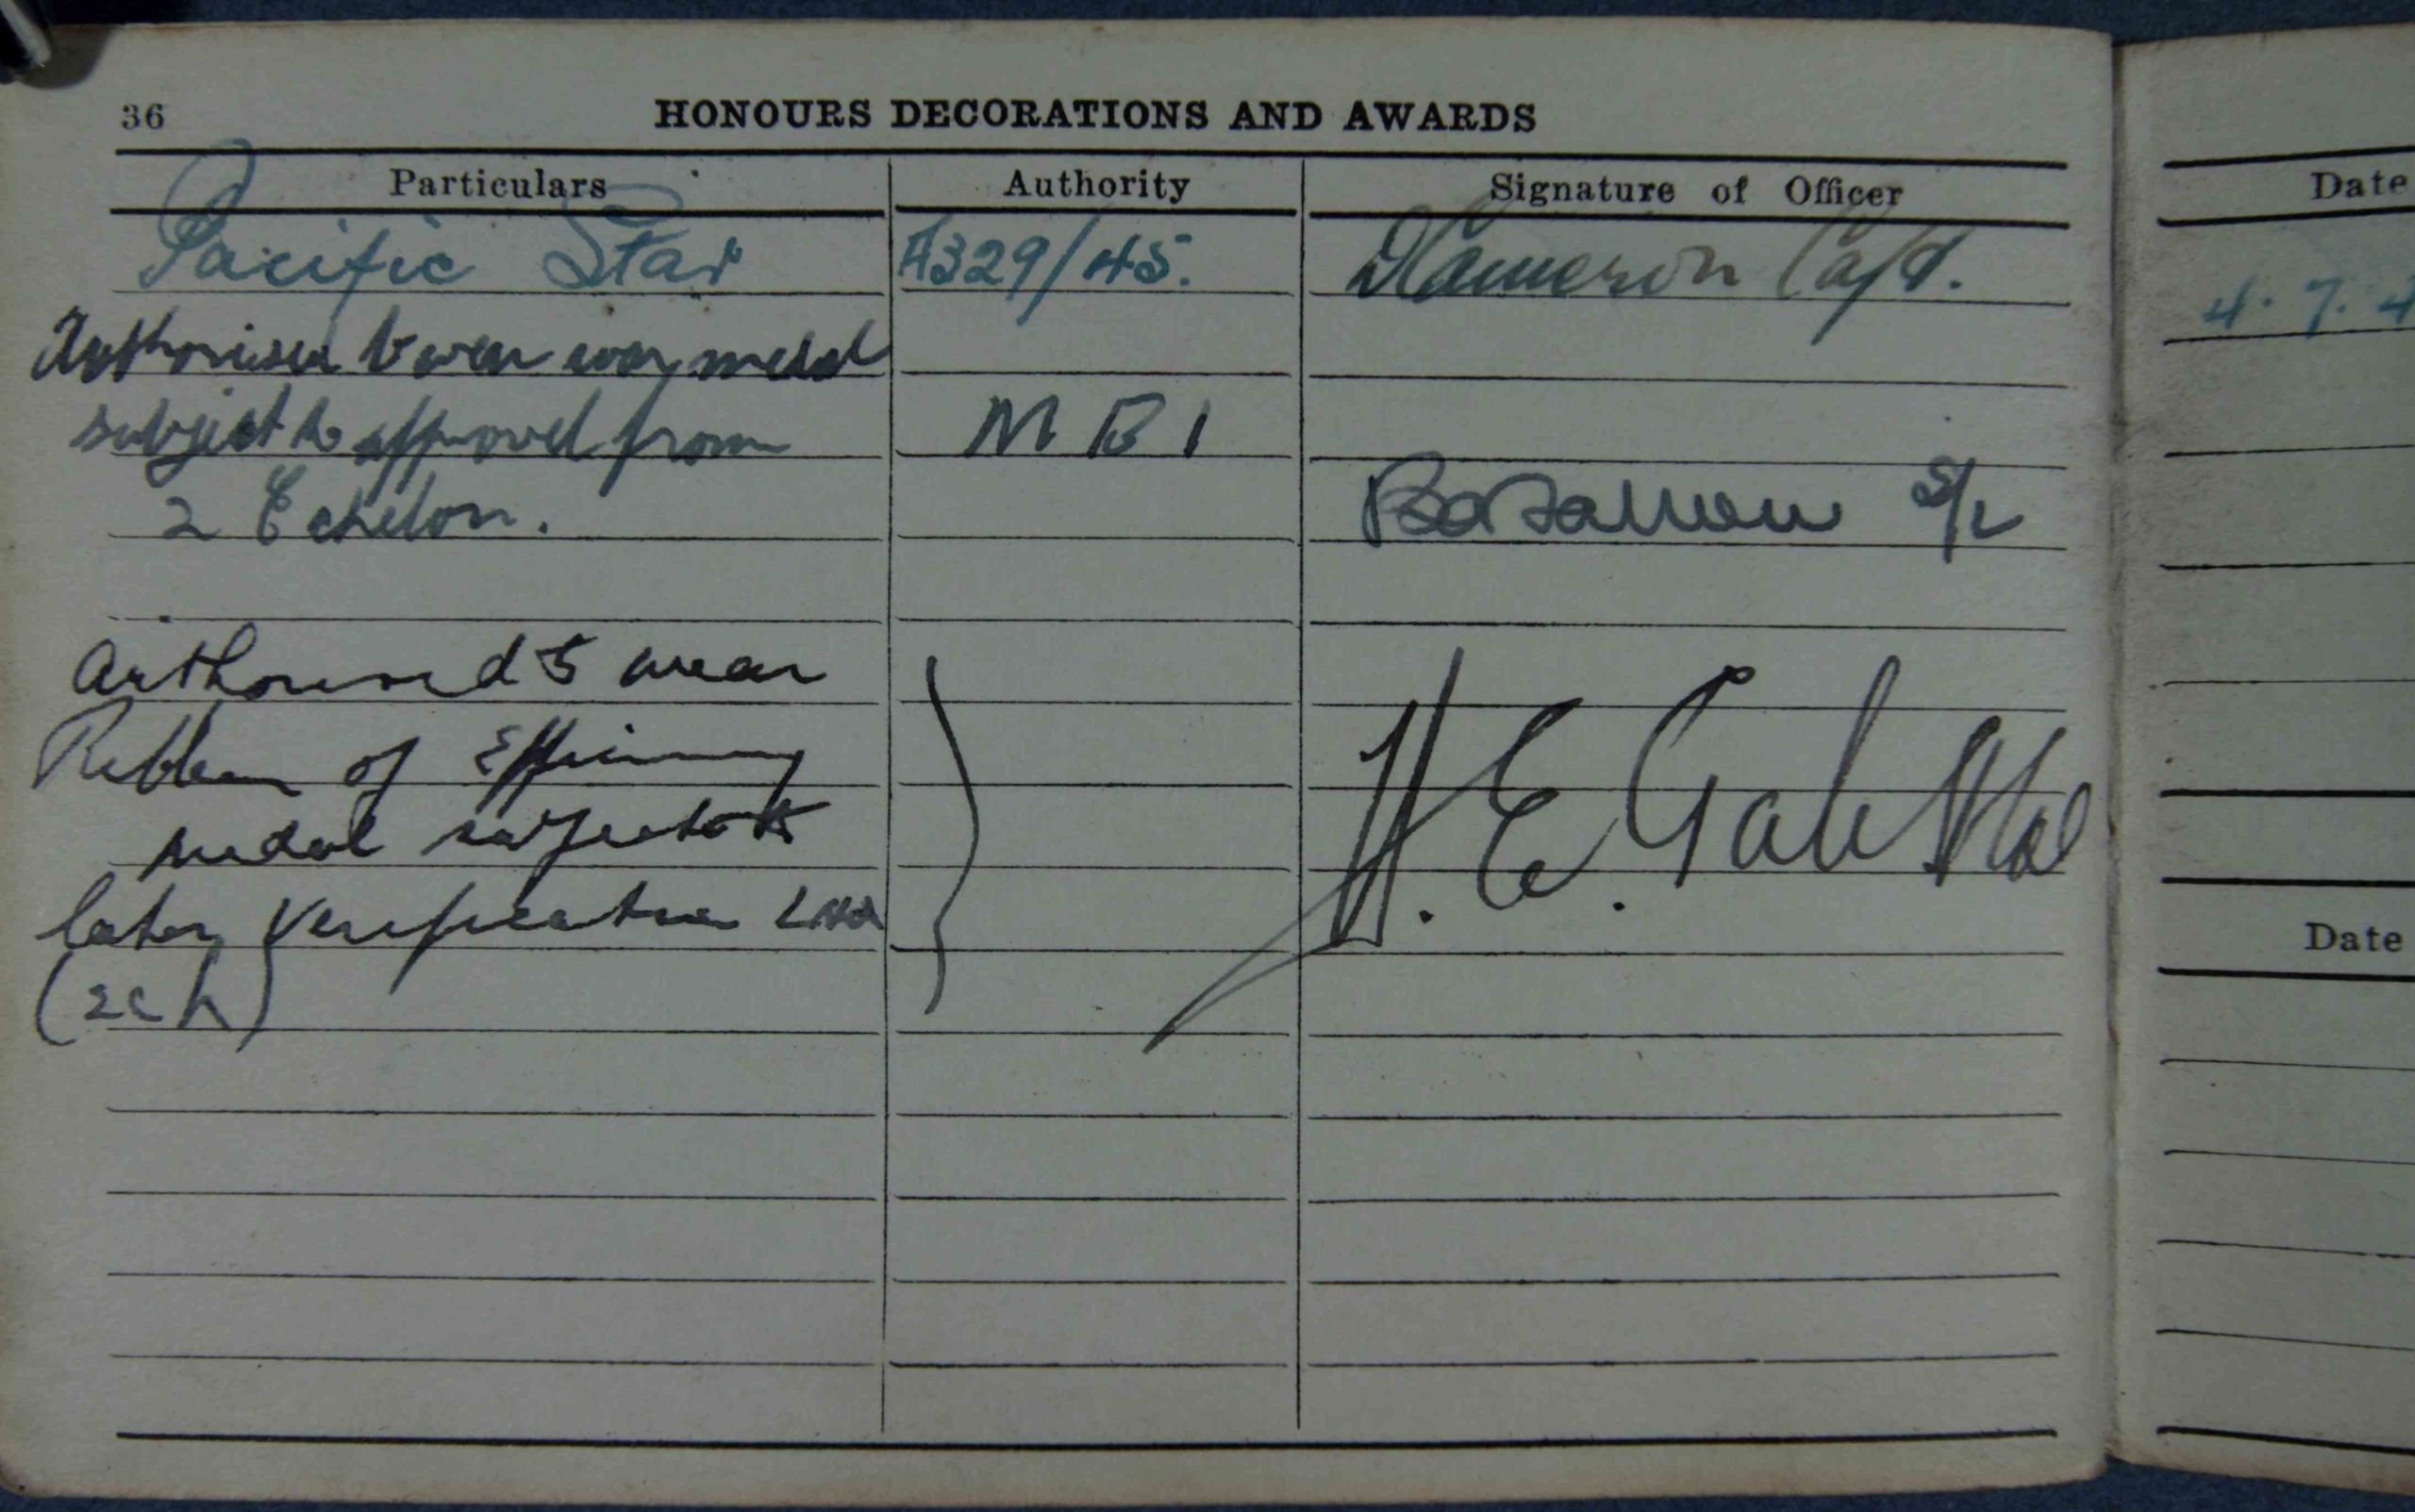 36
HONOURS DECORATIONS AND AWARDS
Particulars Authority Signature of Officer
Pacific Star A329/45. Cameron Capt.
Authorised to wear war medal
subject to approval from M B 1
2 Echelon. S/L
authorised to wear
Ribbon of Efficiency
medal subject to
later verification
(2Ech)
H. E. Gale
Date
4. 7. 4
Date